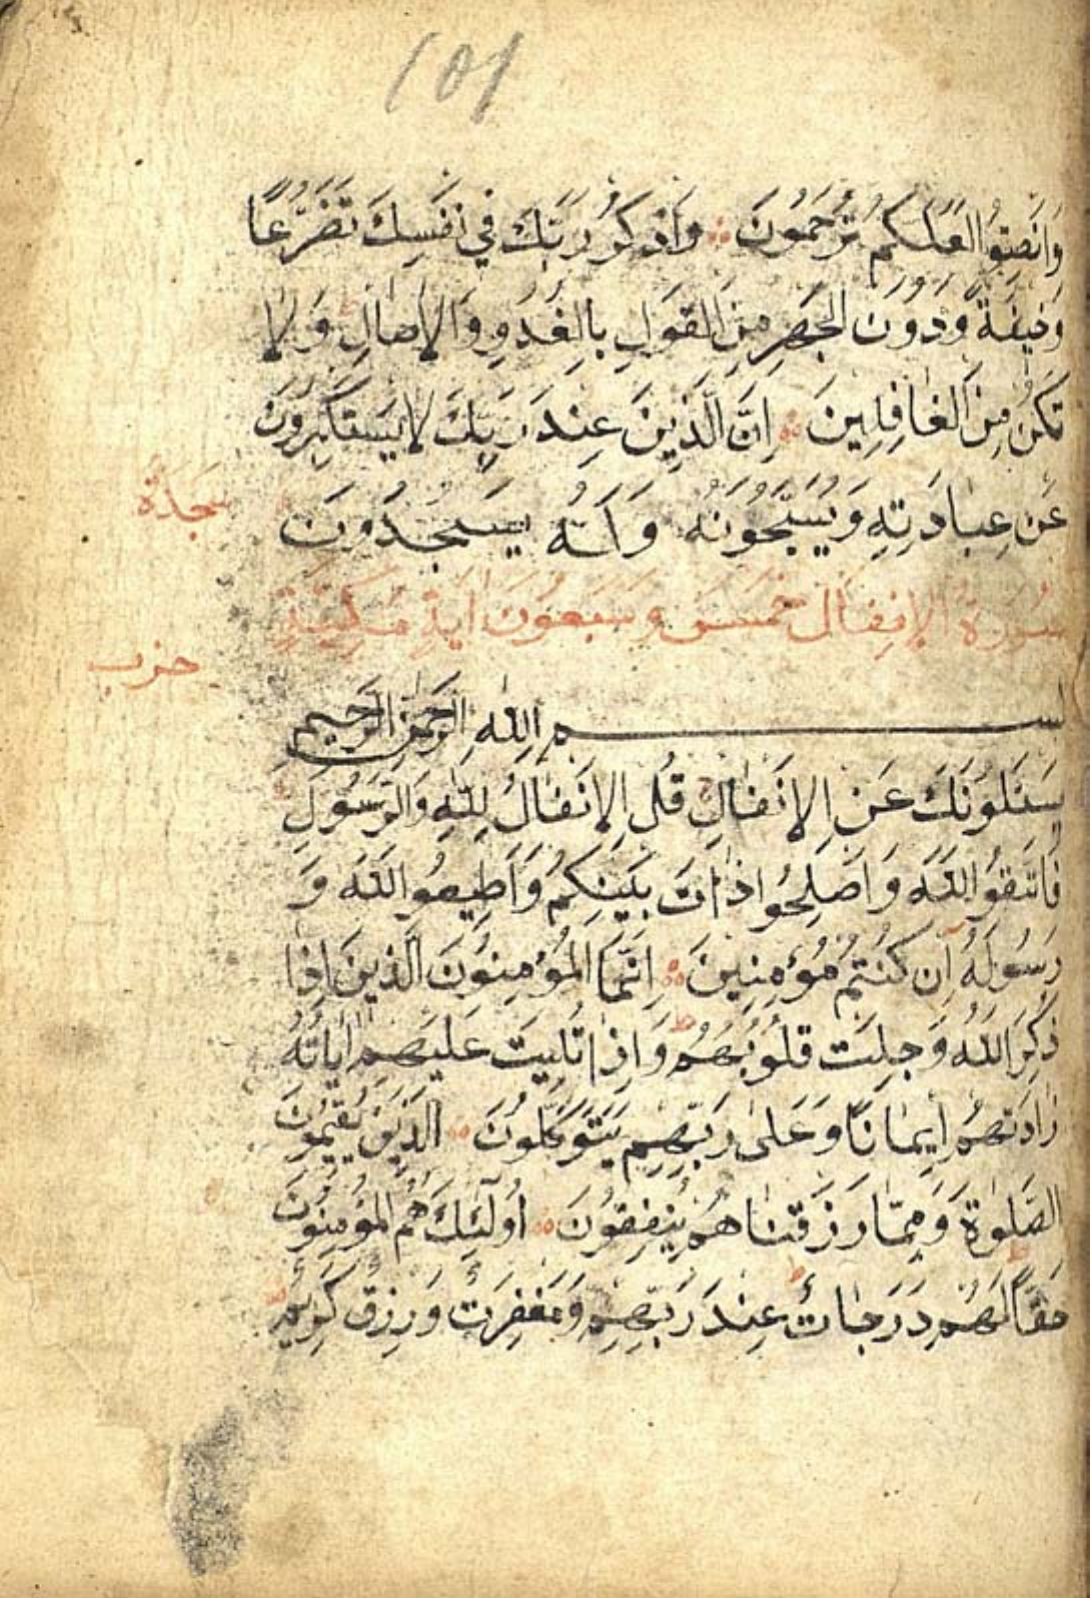 101
وَانْصِتُوا لَعَلَّكُمْ تُرْحَمُونَ وَاذْكُرْ رَبَّكَ فِي نَفْسِكَ تَضَرُّعًا
وَخِيفَةً وَدُونَ الْجَهْرِ مِنَ الْقَوْلِ بِالْغُدُوِّ وَالْاٰصَالِ وَلَا
تَكُنْ مِنَ الْغَافِلِينَ اِنَّ الَّذِينَ عِنْدَ رَبِّكَ لَا يَسْتَكْبِرُونَ
عَنْ عِبَادَتِهِ وَيُسَبِّحُونَهُ وَلَهُ يَسْجُدُونَ
سجدة
سُورَةُ الْاِنْفَال خَمْسَ وَسَبْعُونَ اٰيَةٍ مَكِّيَّةٍ
حزب
بسم اللّٰهِ الرَّحْمٰنِ الرَّحِيمِ
يَسْئَلُونَكَ عَنِ الْاَنْفَالِ قُلِ الْاَنْفَالُ لِلّٰهِ وَالرَّسُولِ
فَاتَّقُوا اللّٰهَ وَاَصْلِحُوا ذَاتَ بَيْنِكُمْ وَاَطِيعُوا اللّٰهَ وَ
رَسُولَهُ اِنْ كُنْتُمْ مُؤْمِنِينَ اِنَّمَا الْمُؤْمِنُونَ الَّذِينَ اِذَا
ذُكِرَ اللّٰهُ وَجِلَتْ قُلُوبُهُمْ وَاِذَا تُلِيَتْ عَلَيْهِمْ اٰيَاتُهُ
زَادَتْهُمْ اِيمَانًا وَعَلٰى رَبِّهِمْ يَتَوَكَّلُونَ الَّذِينَ يُقِيمُونَ
الصَّلٰوةَ وَمِمَّا رَزَقْنَاهُمْ يُنْفِقُونَ اُولٰئِكَ هُمُ الْمُؤْمِنُونَ
حَقًّا لَهُمْ دَرَجَاتٌ عِنْدَ رَبِّهِمْ وَمَغْفِرَتٌ وَرِزْقٌ كَرِيمٌ